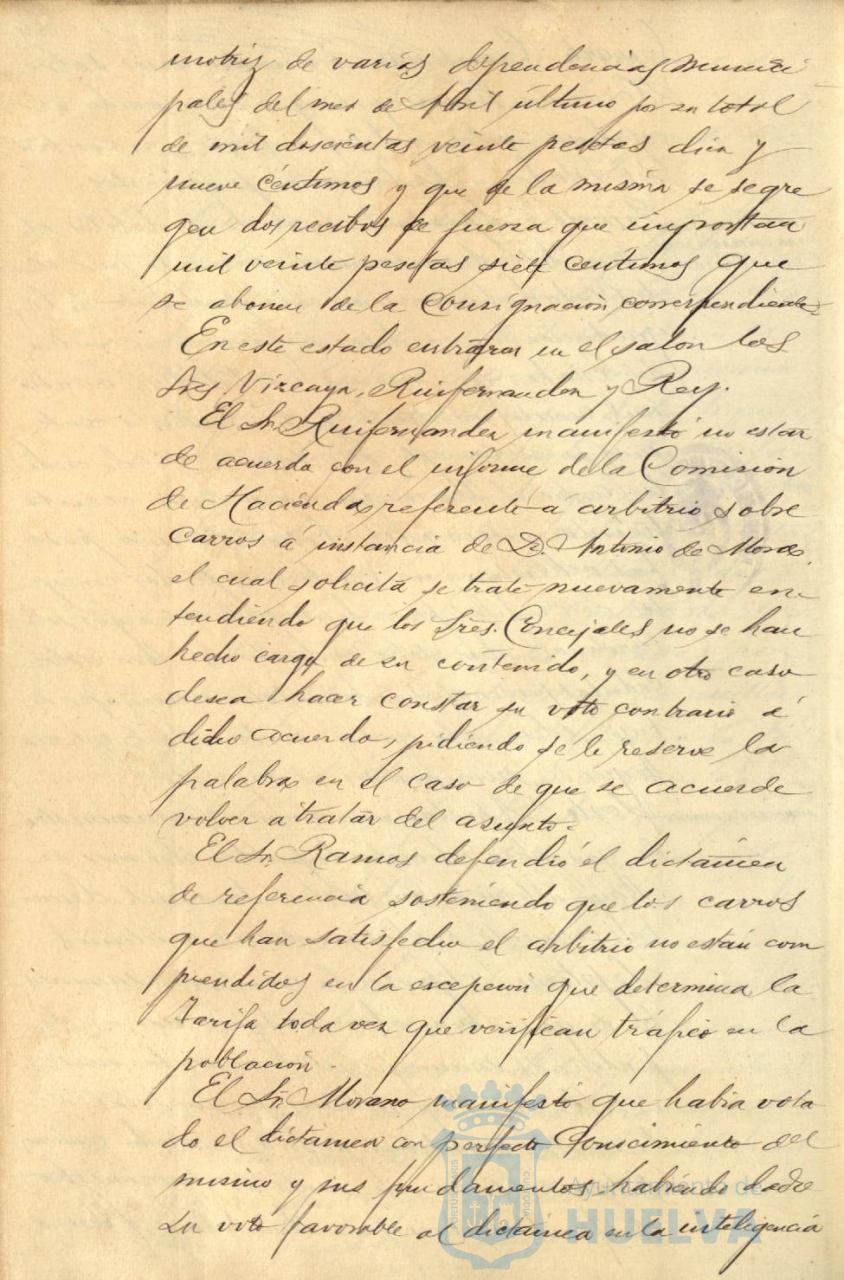 motriz de varias dependencias munici
pales del mes de Abril último por su total
de mil doscientas veinte pesetas diez y
nueve céntimos y que de la misma se segre
gen dos recibos de fuerza que importan
mil veinte pesetas siete centimos que
se abonen de la consignación correspondiente.
En este estado entraron en el salon los
Sres Vizcaya, Ruifernandez y Rey.
El Sr. Ruifernandez manifestó no estar
de acuerdo con el informe de la Comisión
de Hacienda referente á arbitrio sobre
carros á instancia de D. Antonio de Mora,
el cual solicita se trate nuevamente en-
tendiendo que los Sres. Concejales no se han
hecho cargo de su contenido, y en otro caso
desea hacer constar su voto contrario á
dicho acuerdo, pidiendo se le reserve la
palabra en el caso de que se acuerde
volver a tratar del asunto.
El Sr. Ramos defendió el dictámen
de referencia sosteniendo que los carros
que han satisfecho el arbitrio no están com
prendidos en la excepción que determina la
Tarifa toda vez que verifican tráfico en la
población.
El Sr. Morano manifestó que habia vota
do el dictamen con perfecto conocimiento del
mismo y sus fundamentos, habiendo dado
su voto favorable al dictamen en la inteligencia
Ayuntamiento de
HUELVA